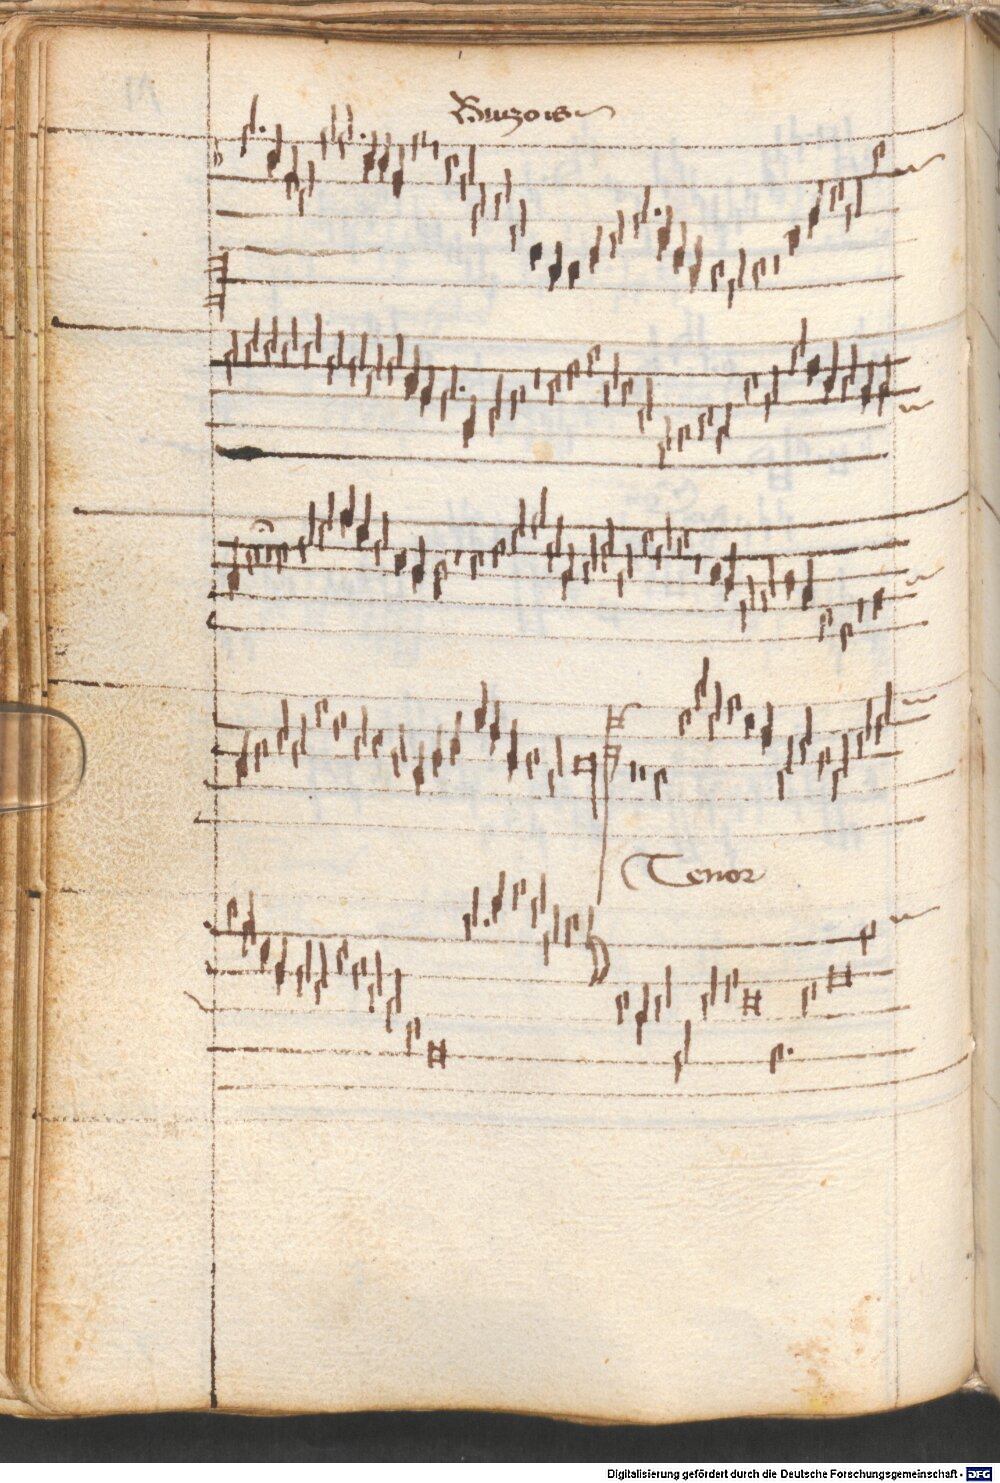 Buzois
Tenor
Digitalisierung gefördert durch die Deutsche Forschungsgemeinschaft - DFG